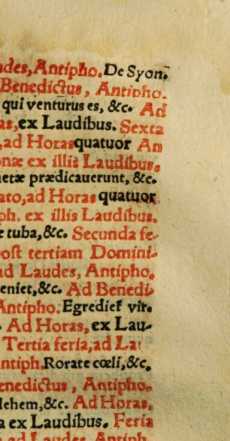 udes, Antipho. De Syon.
Benedictus, Antipho.
qui venturus es, &c. Ad
as, ex Laudibus. Sexta
, ad Horas quatuor An
onæ ex illis Laudibus.
hetæ prædicauerunt, &c.
ato, ad Horas quatuor
ph. ex illis Laudibus.
e tuba, &c. Secunda fe-
post tertiam Domini-
ad Laudes, Antipho.
eniet, &c. Ad Benedi-
Antipho. Egrediet vir.
. Ad Horas, ex Lau-
Tertia feria, ad La
ntiph. Rorate cœli, &c.
enedictus, Antipho.
lehem, &c. Ad Horas,
a ex Laudibus. Feria
ad Laudes Antiph